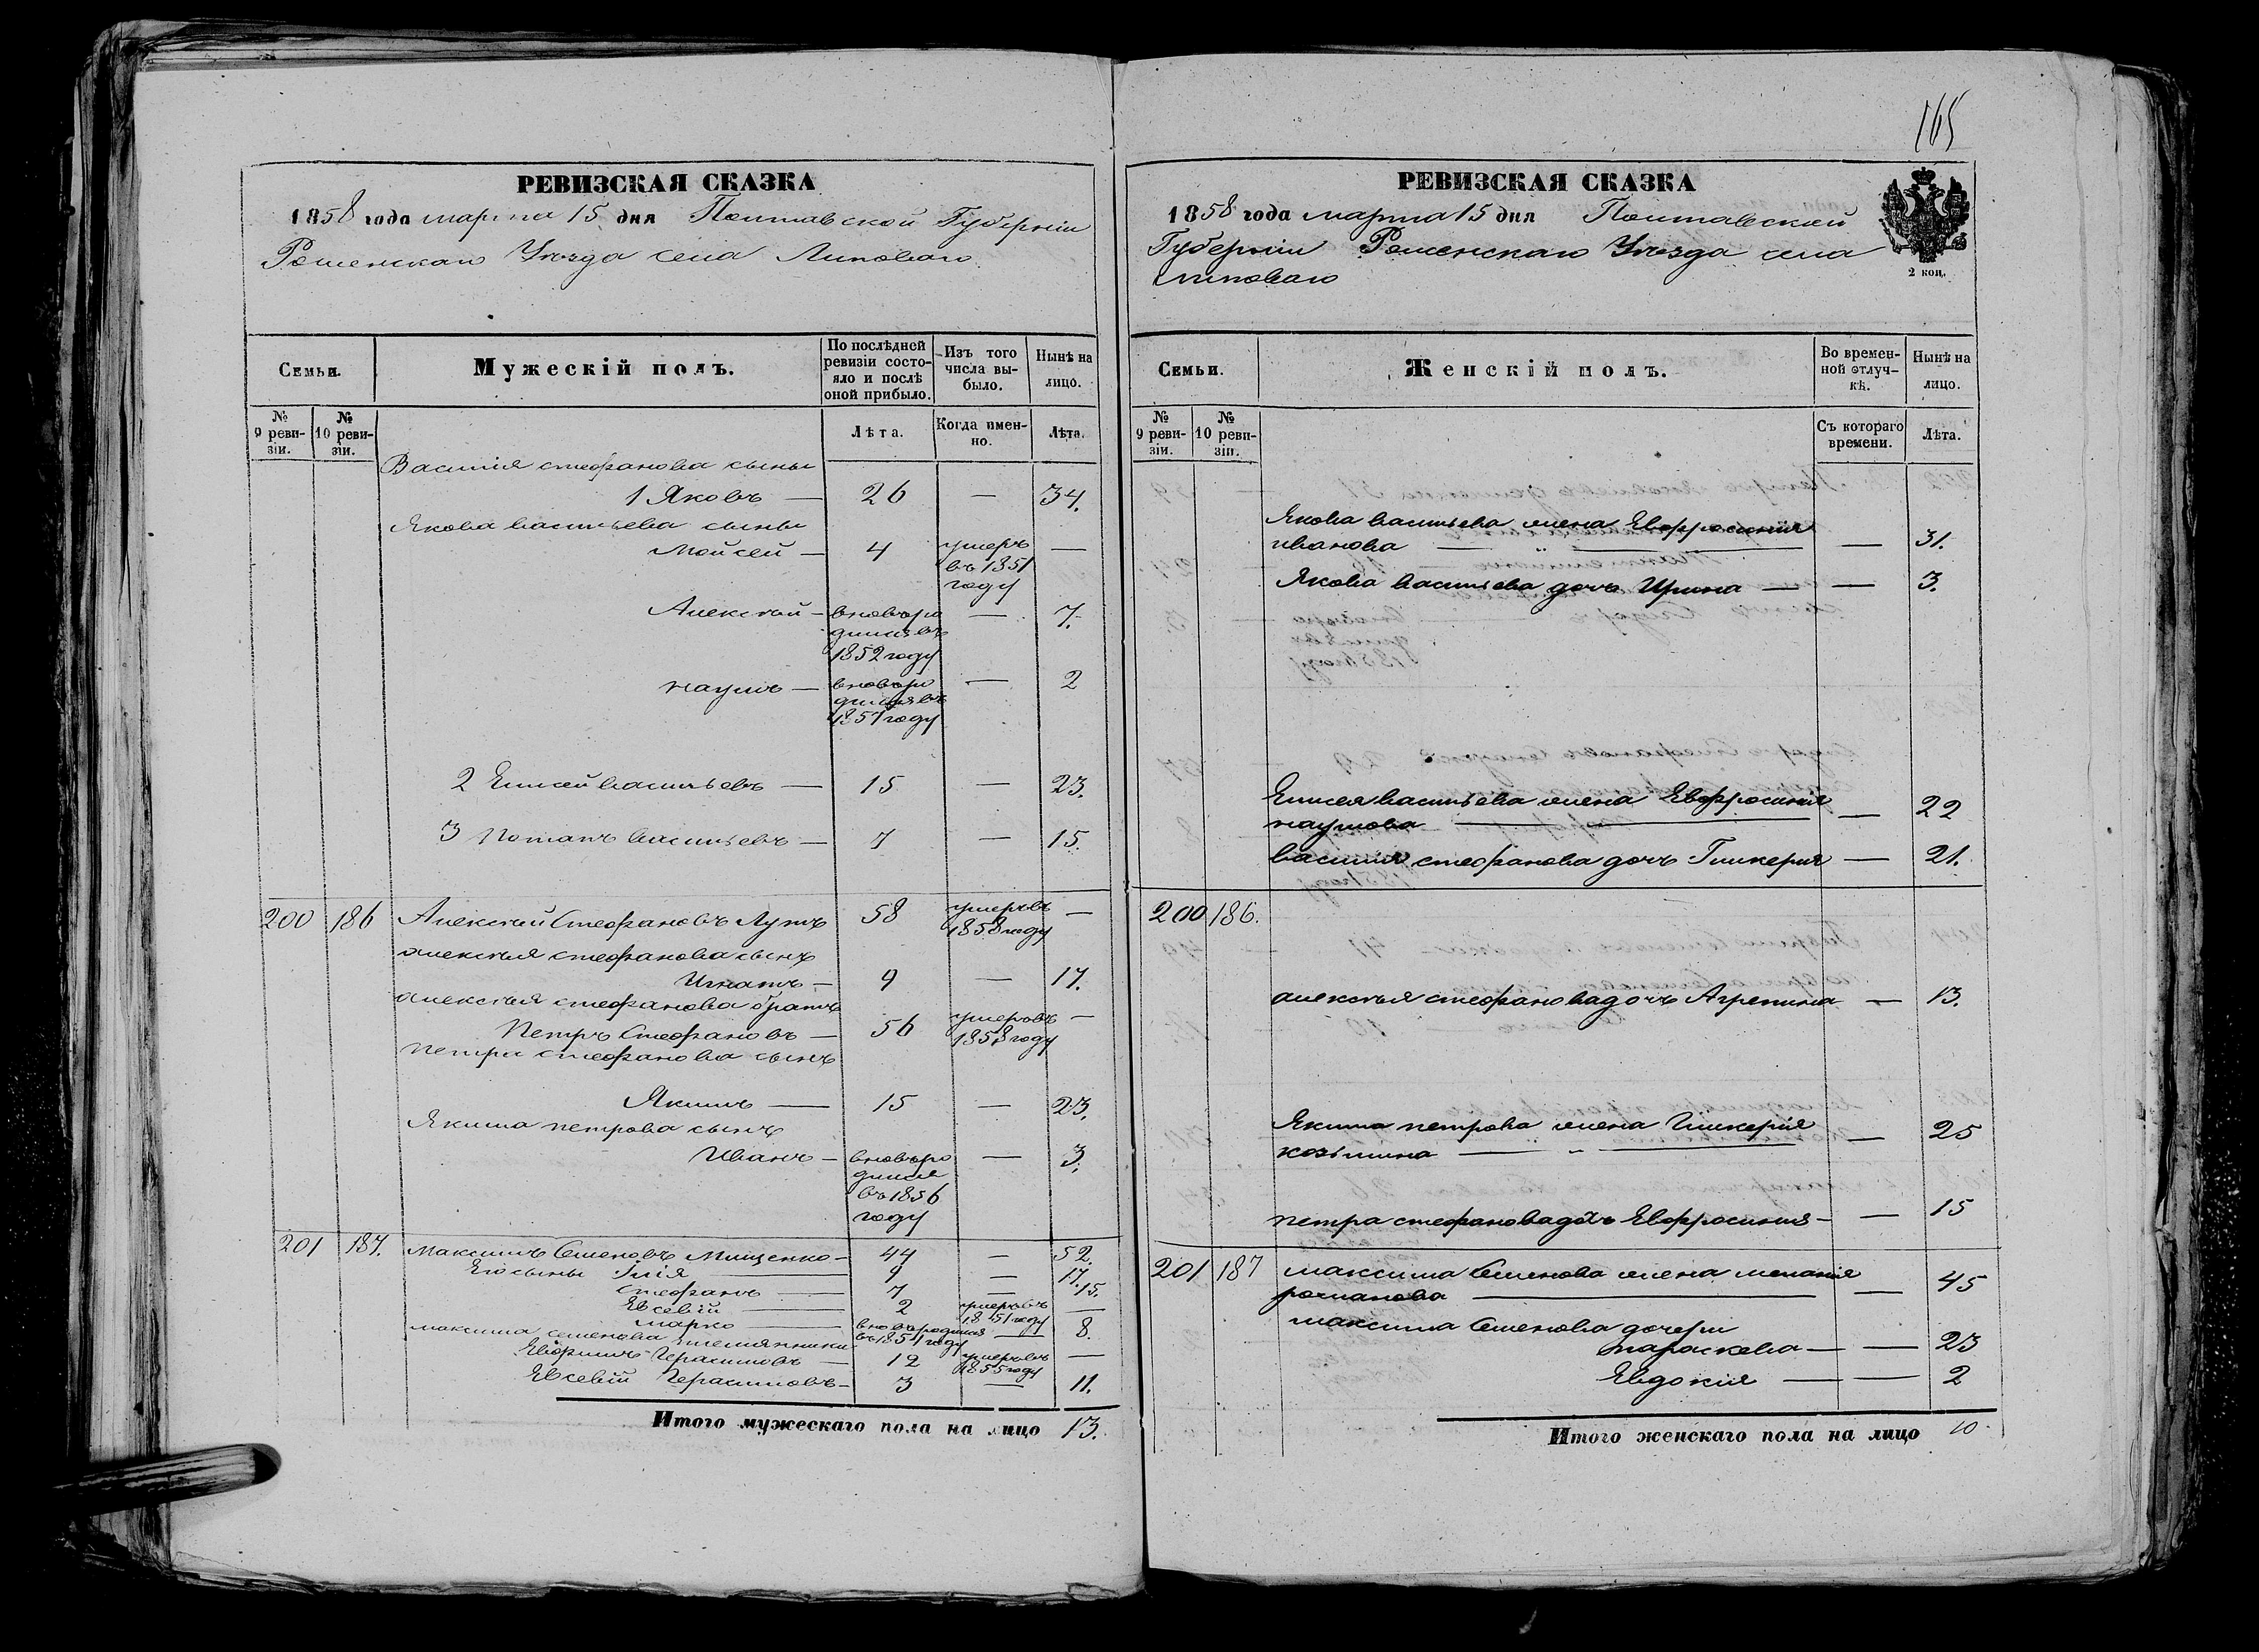 165
РЕВИЗСКАЯ СКАЗКА
1858 года марта 15 дня Полтавской Губерніи
Роменскаго Уѣзда села Липоваго
Семьи.
Мужескій полъ.
По послѣдней ревизіи состояло и послѣ оной прибыло.
Изъ того числа выбыло.
Нынѣ на лицо.
№ 9 ревизіи.
№ 10 ревизіи.
Лѣта.
Когда именно.
Лѣта.
Василія стефанова сыны
1 Яковъ — 26 — 34.
Якова васильева сыны
Мойсей — 4 умеръ въ 1851 году —
Алексѣй — вновь родился въ 1852 году — 7.
наумъ — вновь родился въ 1857 году — 2
2 Елисей васильевъ — 15 — 23.
3 Потапъ васильевъ — 7 — 15.
200 186 Алексѣй Стефановъ 58 умеръ въ 1858 году —
алексѣя стефанова сынъ
Игнатъ — 9 — 17.
алексѣя стефанова братъ
Петръ Стефановъ — 56 умеръ въ 1858 году —
петра стефанова сынъ
Якимъ — 15 — 23.
Якима петрова сынъ
Иванъ — вновь родился въ 1856 году — 3.
201 187. Максимъ Семеновъ Мищенко — 44 — 52.
Его сыны Илія — 9 — 17.
стефанъ — 7 — 15.
Евсевій — 2 умеръ въ 1851 году —
марко — вновь родился въ 1851 году — 8.
максима семенова племянники
Ефимъ Герасимовъ — 12 умеръ въ 1855 году —
Евсевій Герасимовъ — 3 — 11.
Итого мужескаго пола на лицо 13.
РЕВИЗСКАЯ СКАЗКА
1858 года марта 15 дня Полтавской
Губерніи Роменскаго Уѣзда села
липоваго
2 коп.
Семьи.
Женскій полъ.
Во временной отлучкѣ.
Нынѣ на лицо.
№ 9 ревизіи.
№ 10 ревизіи.
Съ котораго времени.
Лѣта.
Якова васильева жена Евфросинія
иванова — „ — — 31.
Якова васильева дочь Ирина — — 3.
Елисея васильева жена Евфросинія
наумова — — 22
василія стефанова дочь Гликерія — 21.
200 186.
алексѣя стефанова дочь Агрепина — 13.
Якима петрова жена Гликерія
козьмина — „ — — 25
петра стефанова дочь Евфросинія — — 15
201 187 максима Семенова жена меланія
романова — — 45
максима Семенова дочери
параскева — — 23
Евдокія — — 2
Итого женскаго пола на лицо 10